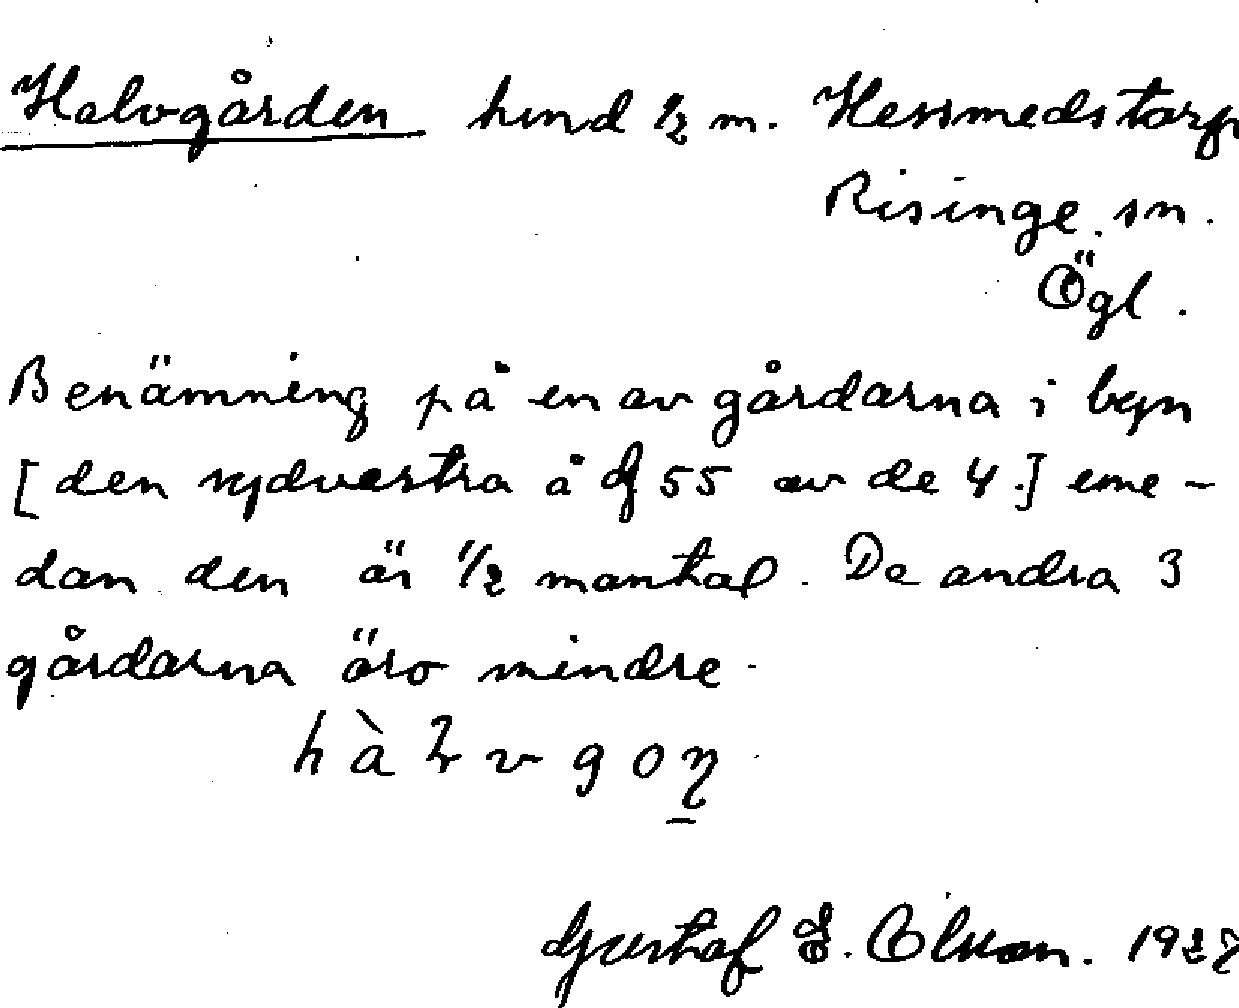 Halvgården hmd ½ m. Hemmedstorp
Risinge sn.
Ögl.
Benämning på en av gårdarna i byn
[den sydvestra å 55 av de 4.] eme-
dan den är ½ mantal. De andra 3
gårdarna äro mindre.
Gustaf E. Olsson.